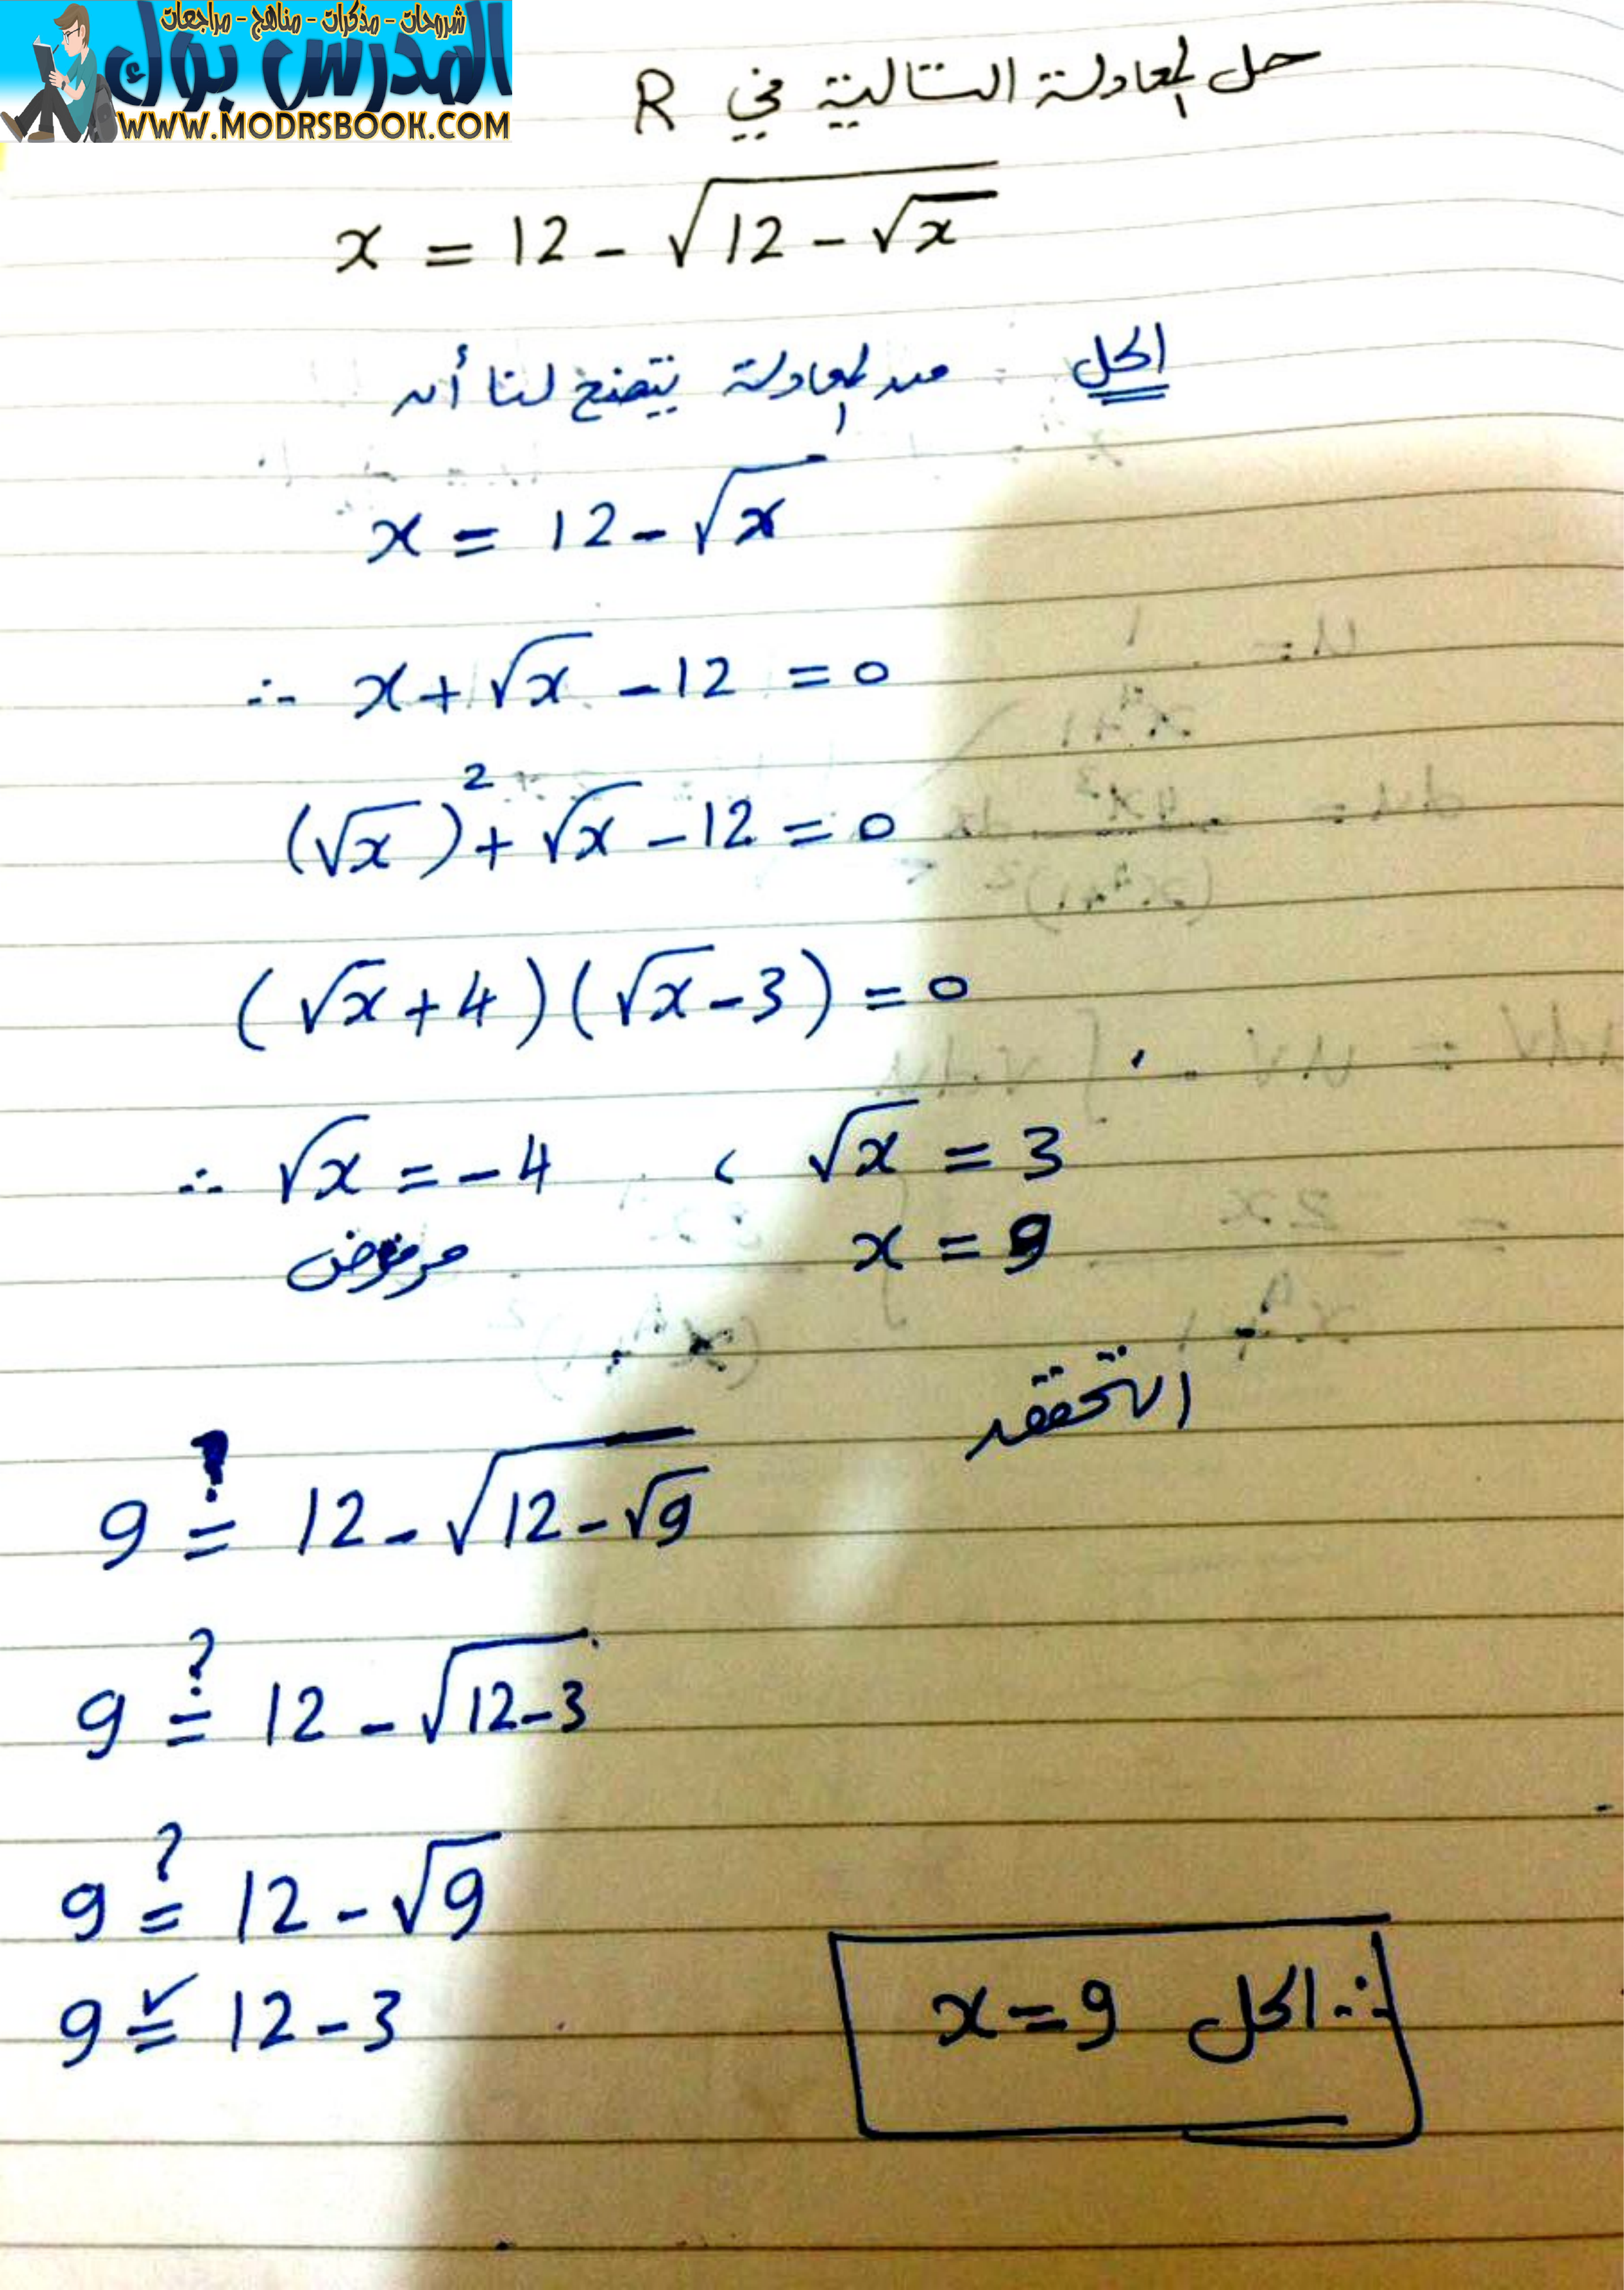 شروحات - مذكرات - مناهج - مراجعات
المدرس بوك
WWW.MODRSBOOK.COM
حل المعادلة التالية في R
x = 12 - √(12 - √x)
الحل من المعادلة يتضح لنا أن
x = 12 - √x
∴ x + √x - 12 = 0
(√x)² + √x - 12 = 0
(√x + 4)(√x - 3) = 0
∴ √x = -4 ، √x = 3
مرفوض x = 9
التحقق
9 ≟ 12 - √(12 - √9)
9 ≟ 12 - √(12 - 3)
9 ≟ 12 - √9
9 =✓ 12 - 3
∴ الحل x = 9